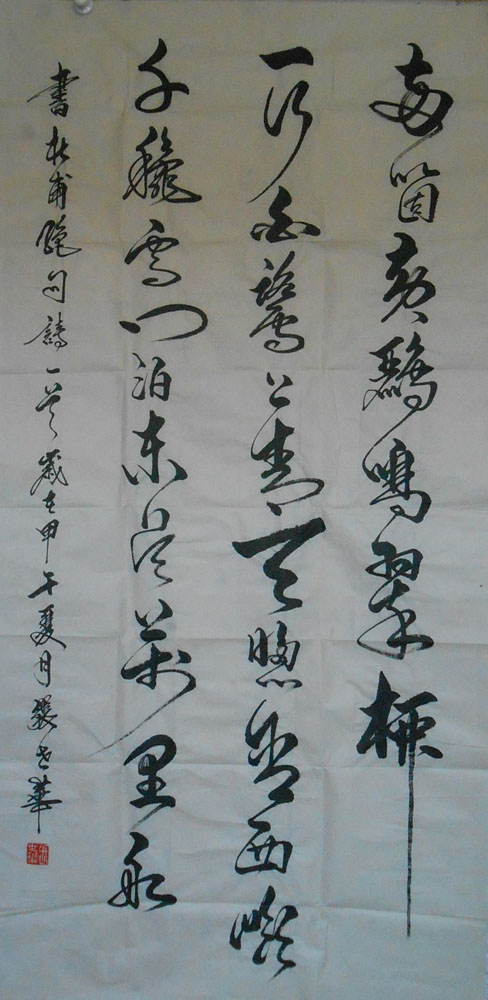 兩箇黄鸝鳴翠柳
一行白鷺上青天牕含西嶺
千穐雪門泊東吳萬里船
書杜甫絕句詩一首歲在甲午夏月華